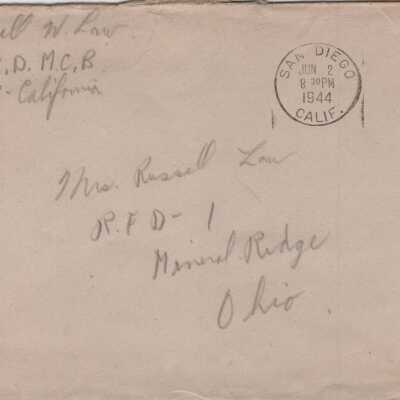 ell W. Law
.D. M.C.B
- California
SAN DIEGO
JUN 2
8 30 PM
1944
CALIF.
Mrs. Russell Law
R.F D- 1
Mineral Ridge
Ohio.